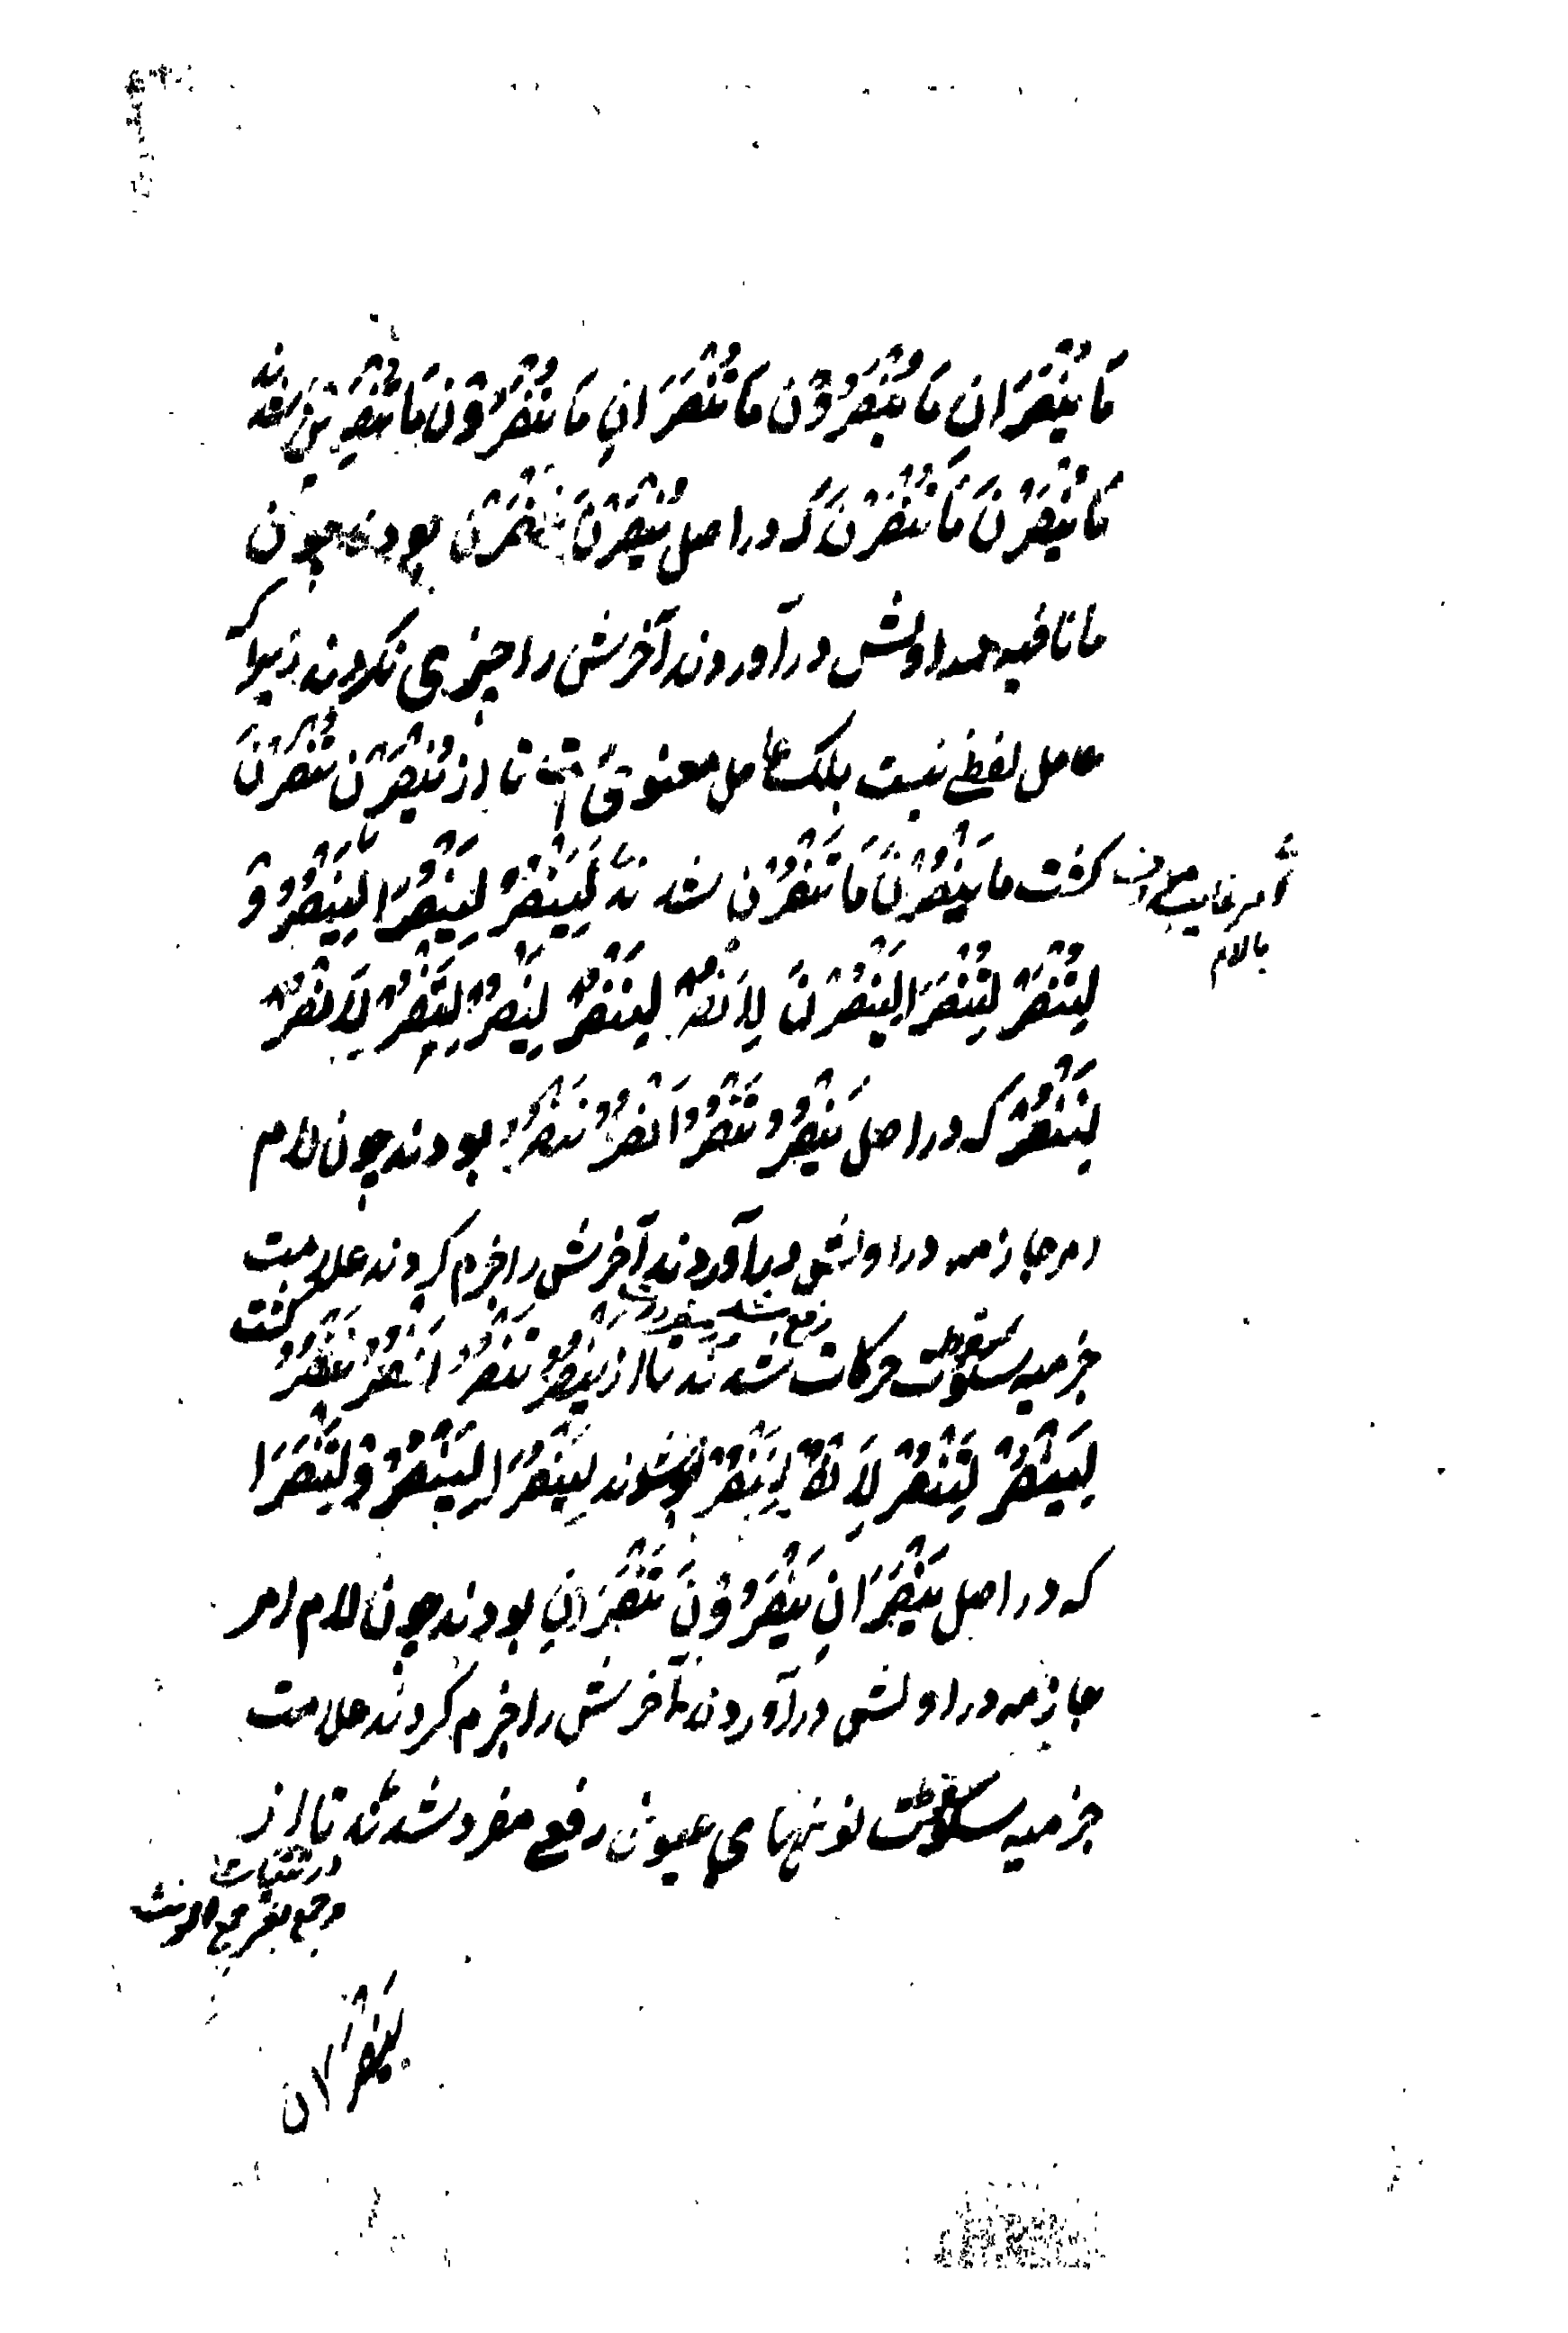 مَا يُنْصَرَانِ مَا يُنْصَرُوْنَ مَا تُنْصَرَانِ مَا تُنْصَرُوْنَ مَا تُنْصَرِيْنَ شدند
مَا يُنْصَرْنَ مَا تُنْصَرْنَ كه در اصل يُنْصَرْنَ تُنْصَرْنَ بودند چون
ما نافيه در اولش در آوردند آخرش را چيزى نكردند زيراكه
عامل لفظے نيست بلكه عامل معنوىْ است تا از يُنْصَرْنَ تُنْصَرْنَ
گشت مَا يَنْصُرْنَ مَا تَنْصُرْنَ شدند لِيَنْصُرْ لِيَنْصُرَا لِيَنْصُرُوْا
امر غايب معروف
بالام
لِتَنْصُرْ لِتَنْصُرَا لِيَنْصُرْنَ لِاَنْصُرْ لِنَنْصُرْ لِيَنْصُرْ لِتَنْصُرْ لِاَنْصُرْ
لِنَنْصُرْ كه در اصل يَنْصُرُ تَنْصُرُ اَنْصُرُ نَنْصُرُ بودند چون لام
امر جازمه در اولش در آوردند آخرش را جزم كردند علامت
جزميه سقوط حركات شدند تا از يَنْصُرُ تَنْصُرُ اَنْصُرُ نَنْصُرُ گشت
لِيَنْصُرْ لِتَنْصُرْ لِاَنْصُرْ لِنَنْصُرْ شوند لِيَنْصُرَا لِيَنْصُرُوْا لِتَنْصُرَا
كه در اصل يَنْصُرَانِ يَنْصُرُوْنَ تَنْصُرَانِ بودند چون لام امر
جازمه در اولش در آوردند آخرش را جزم كردند علامت
جزميه سقوط نونهاي عوض رفع مفرد شدند تا از
در تثنيات
وجمع
يَنْصُرَانِ